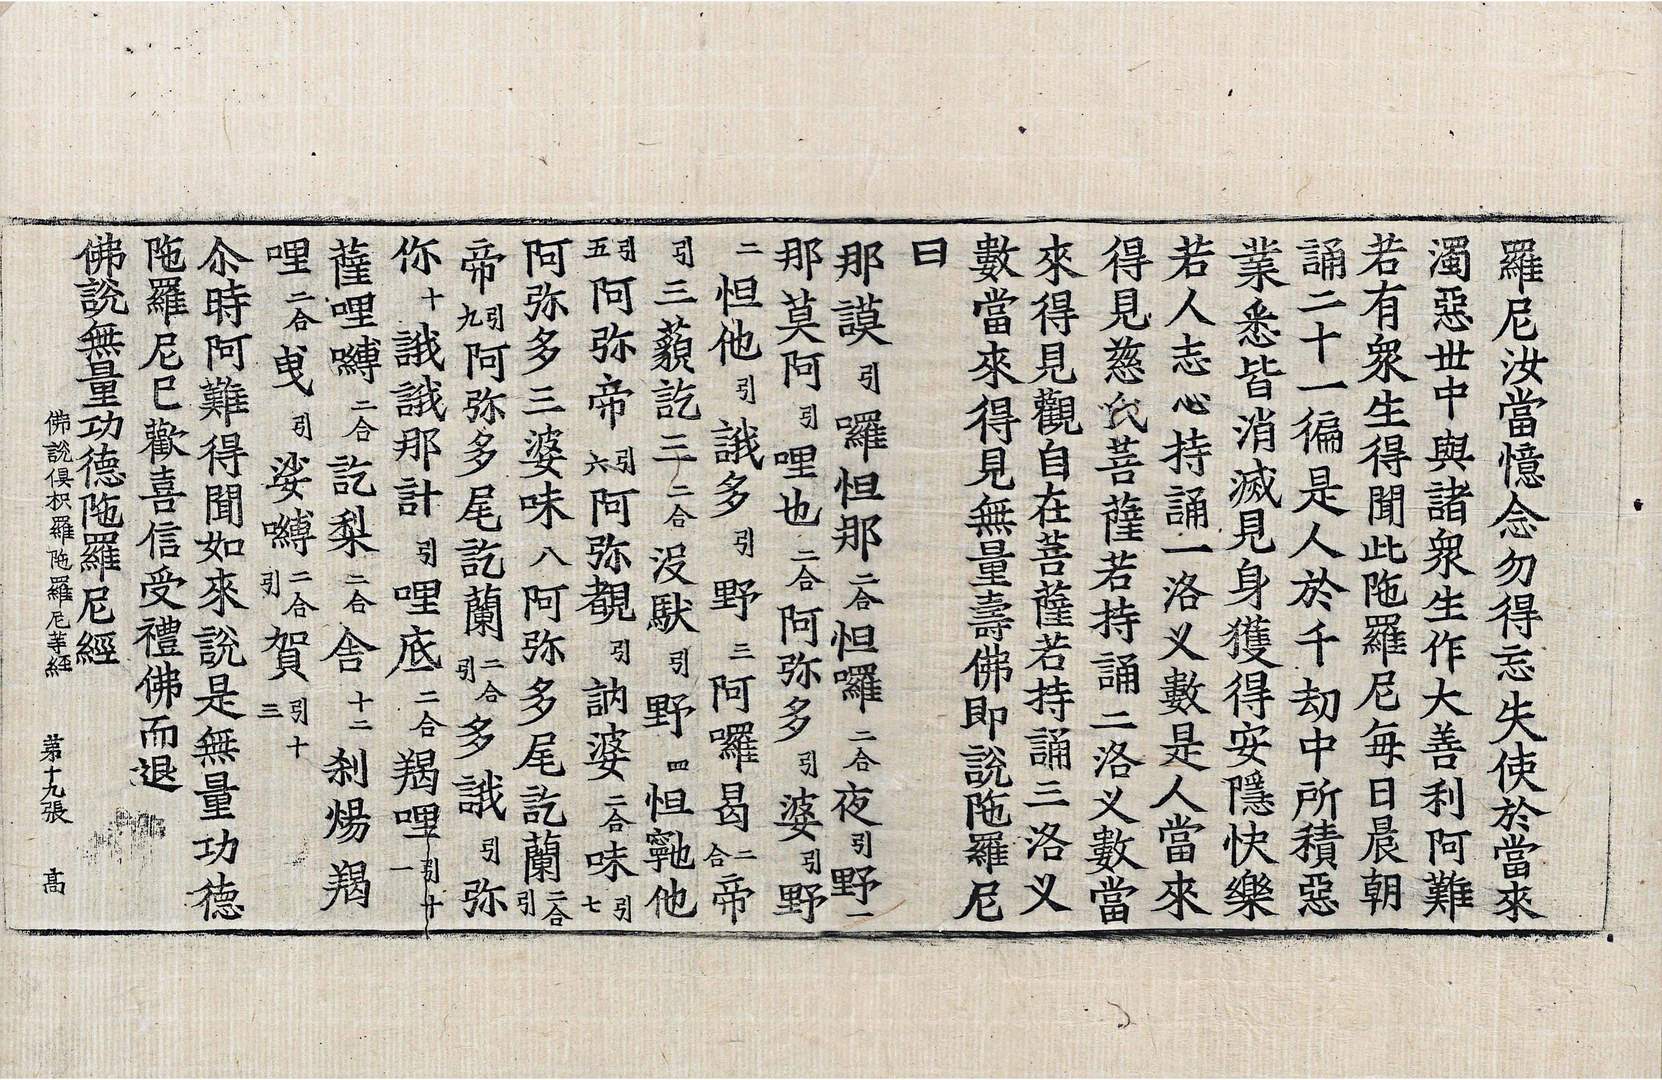 羅尼汝當憶念勿得忘失使於當來
濁惡丗中與諸衆生作大善利阿難
若有衆生得聞此陁羅尼每日晨朝
誦二十一徧是人於千劫中所積惡
業悉皆消滅見身獲得安隱快樂
若人志心持誦一洛义數是人當來
得見慈氏菩薩若持誦二洛义數當
來得見觀自在菩薩若持誦三洛义
數當來得見無量壽佛即說陁羅尼
曰
那謨引囉怛那二合怛囉二合夜引野一
那莫阿引哩也二合阿弥多引婆引野
二怛他引誐多引野三阿囉曷二合帝
引三藐訖三二合沒馱引野四怛寧也他
引五阿弥帝引六阿弥覩引訥婆二合味引七
阿弥多三婆味八阿弥多尾訖蘭二合引
帝引九阿弥多尾訖蘭二合引多誐引弥
你十誐誐那計引哩底二合羯哩引十一
薩哩嚩二合訖梨二合舍十二剎煬羯
哩二合曳引娑嚩二合引賀引十三
尒時阿難得聞如來說是無量功德
陁羅尼已歡喜信受禮佛而退
佛說無量功德陁羅尼經
佛說俱枳羅陁羅尼等經 苐十九張 髙